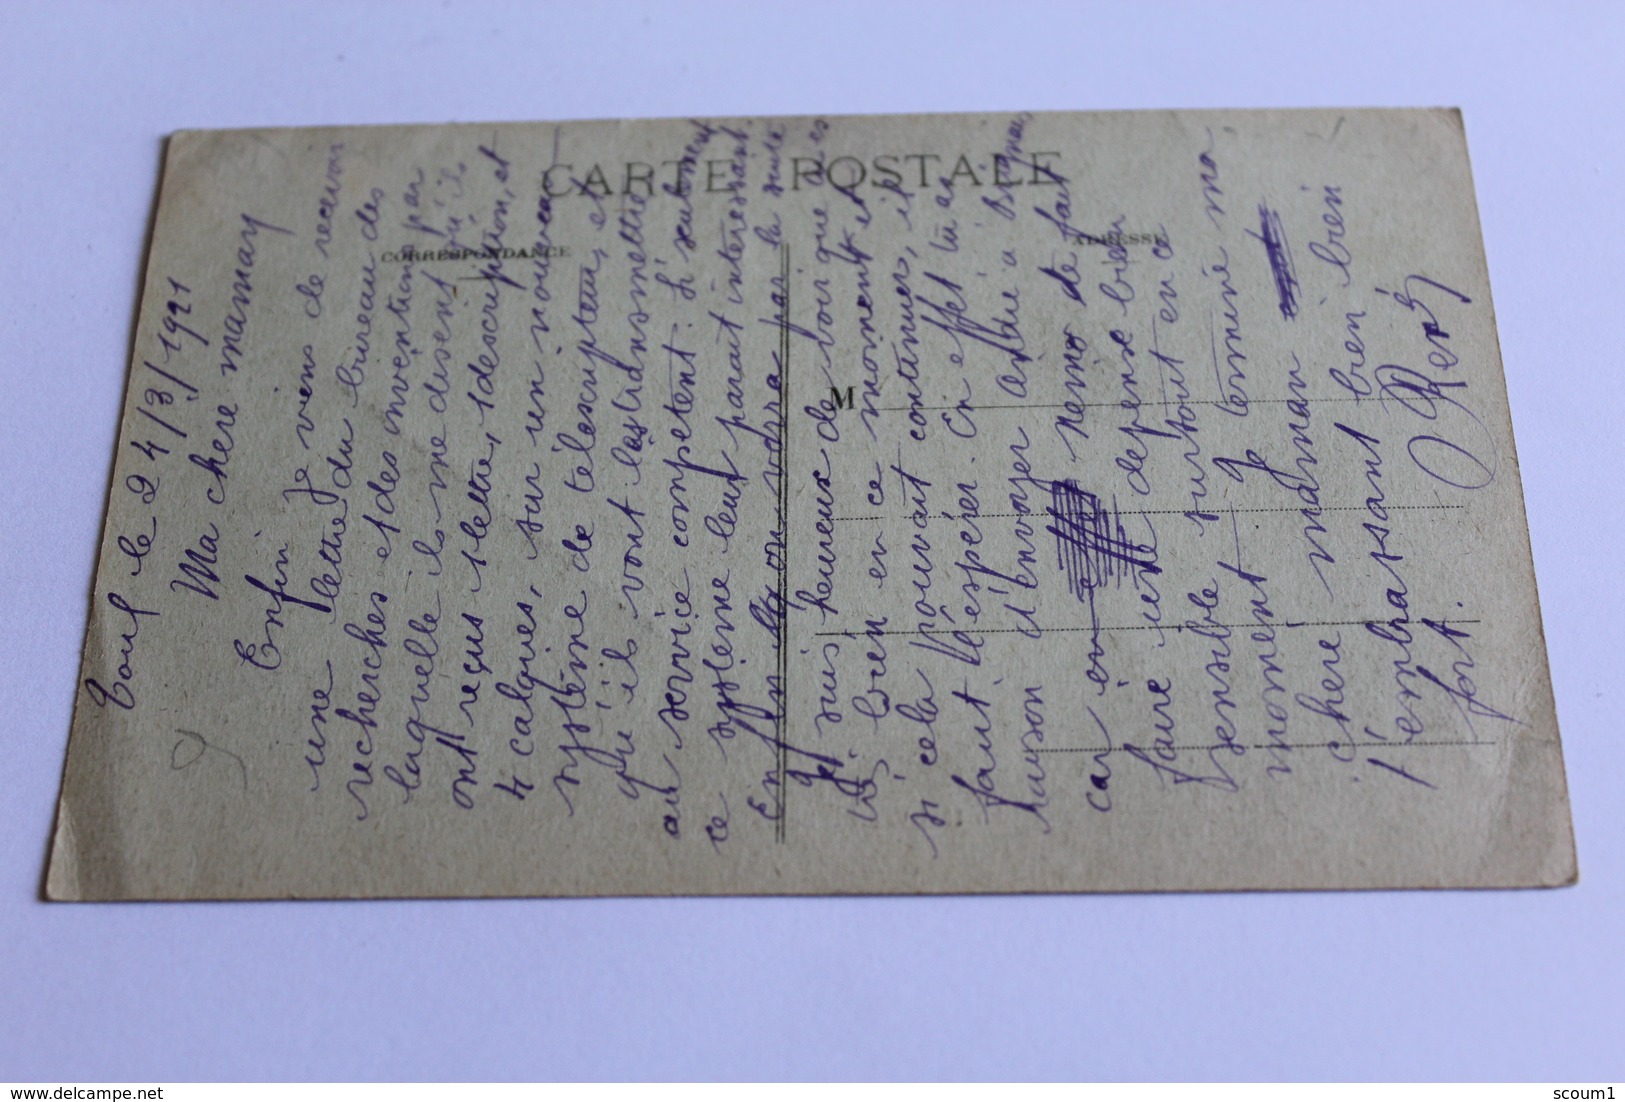 CARTE POSTALE
CORRESPONDANCE
ADRESSE
M
Toul le 24/3/1921
Ma chère maman
Enfin je viens de recevoir
une lettre du bureau des
recherches et des inventions par
laquelle ils me disent qu'ils
ont reçus 1 lettre, 1 description, et
4 calques, sur un nouveau
système de télescripteur, et
qu'ils vont les transmettre
au service competent. Si seulement
ce système leur parait interessant.
Enfin on verra par la suite
Je suis heureux de voir que
bien en ce moment et
si cela pouvait continuer, il
faut l'espérer. En effet tu as
raison d'envoyer André à
car nous fait
faire une depense bien
sensible surtout en ce
moment. Je termine ma
chère maman
t'embrassant bien bien bien
fort. René
delcampe.net
scoum1